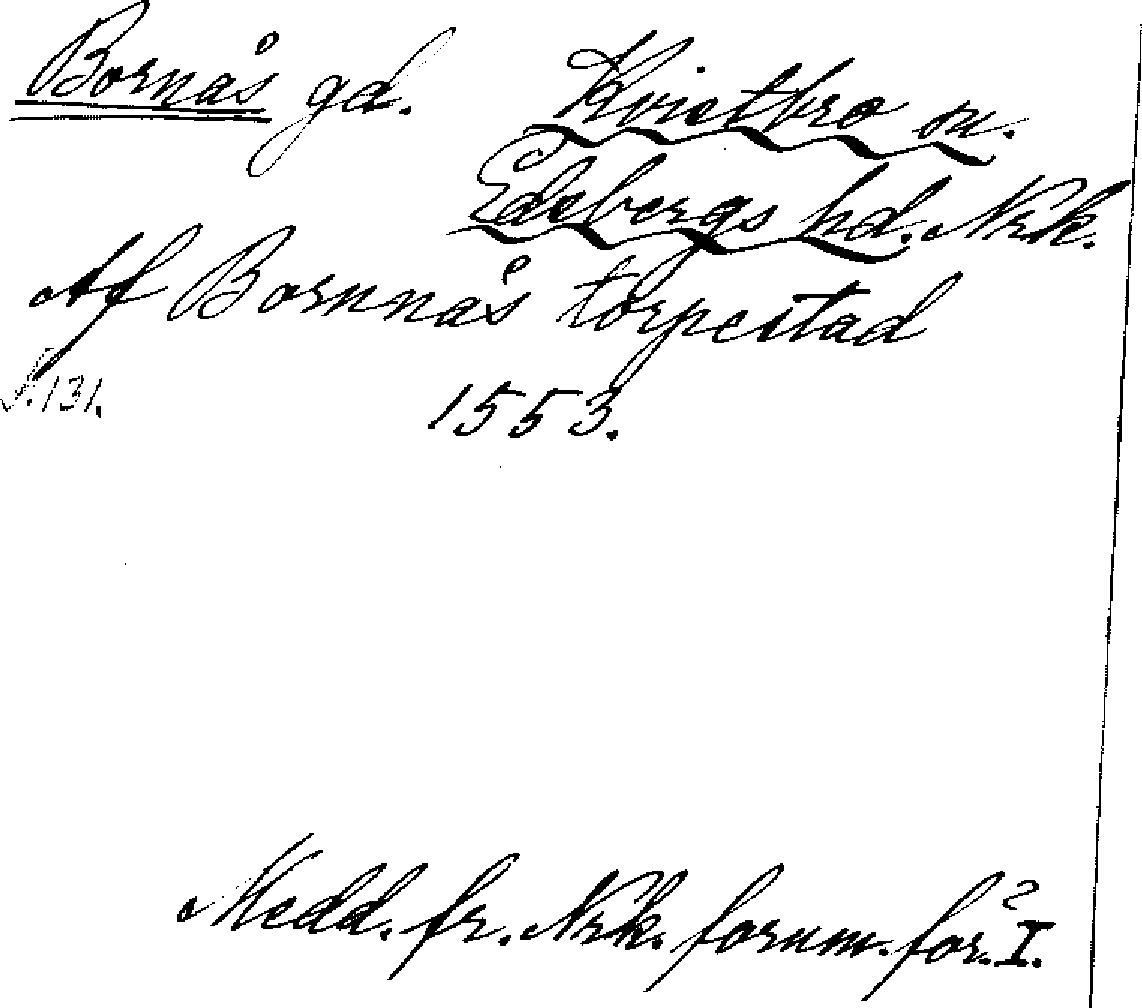 Bornås gd. Kvistbro sn.
Edsbergs hd. Nrk.
Af Bornnås torpestad
S. 131. 1553.
Medd. fr. Nrk. fornm. för. I.